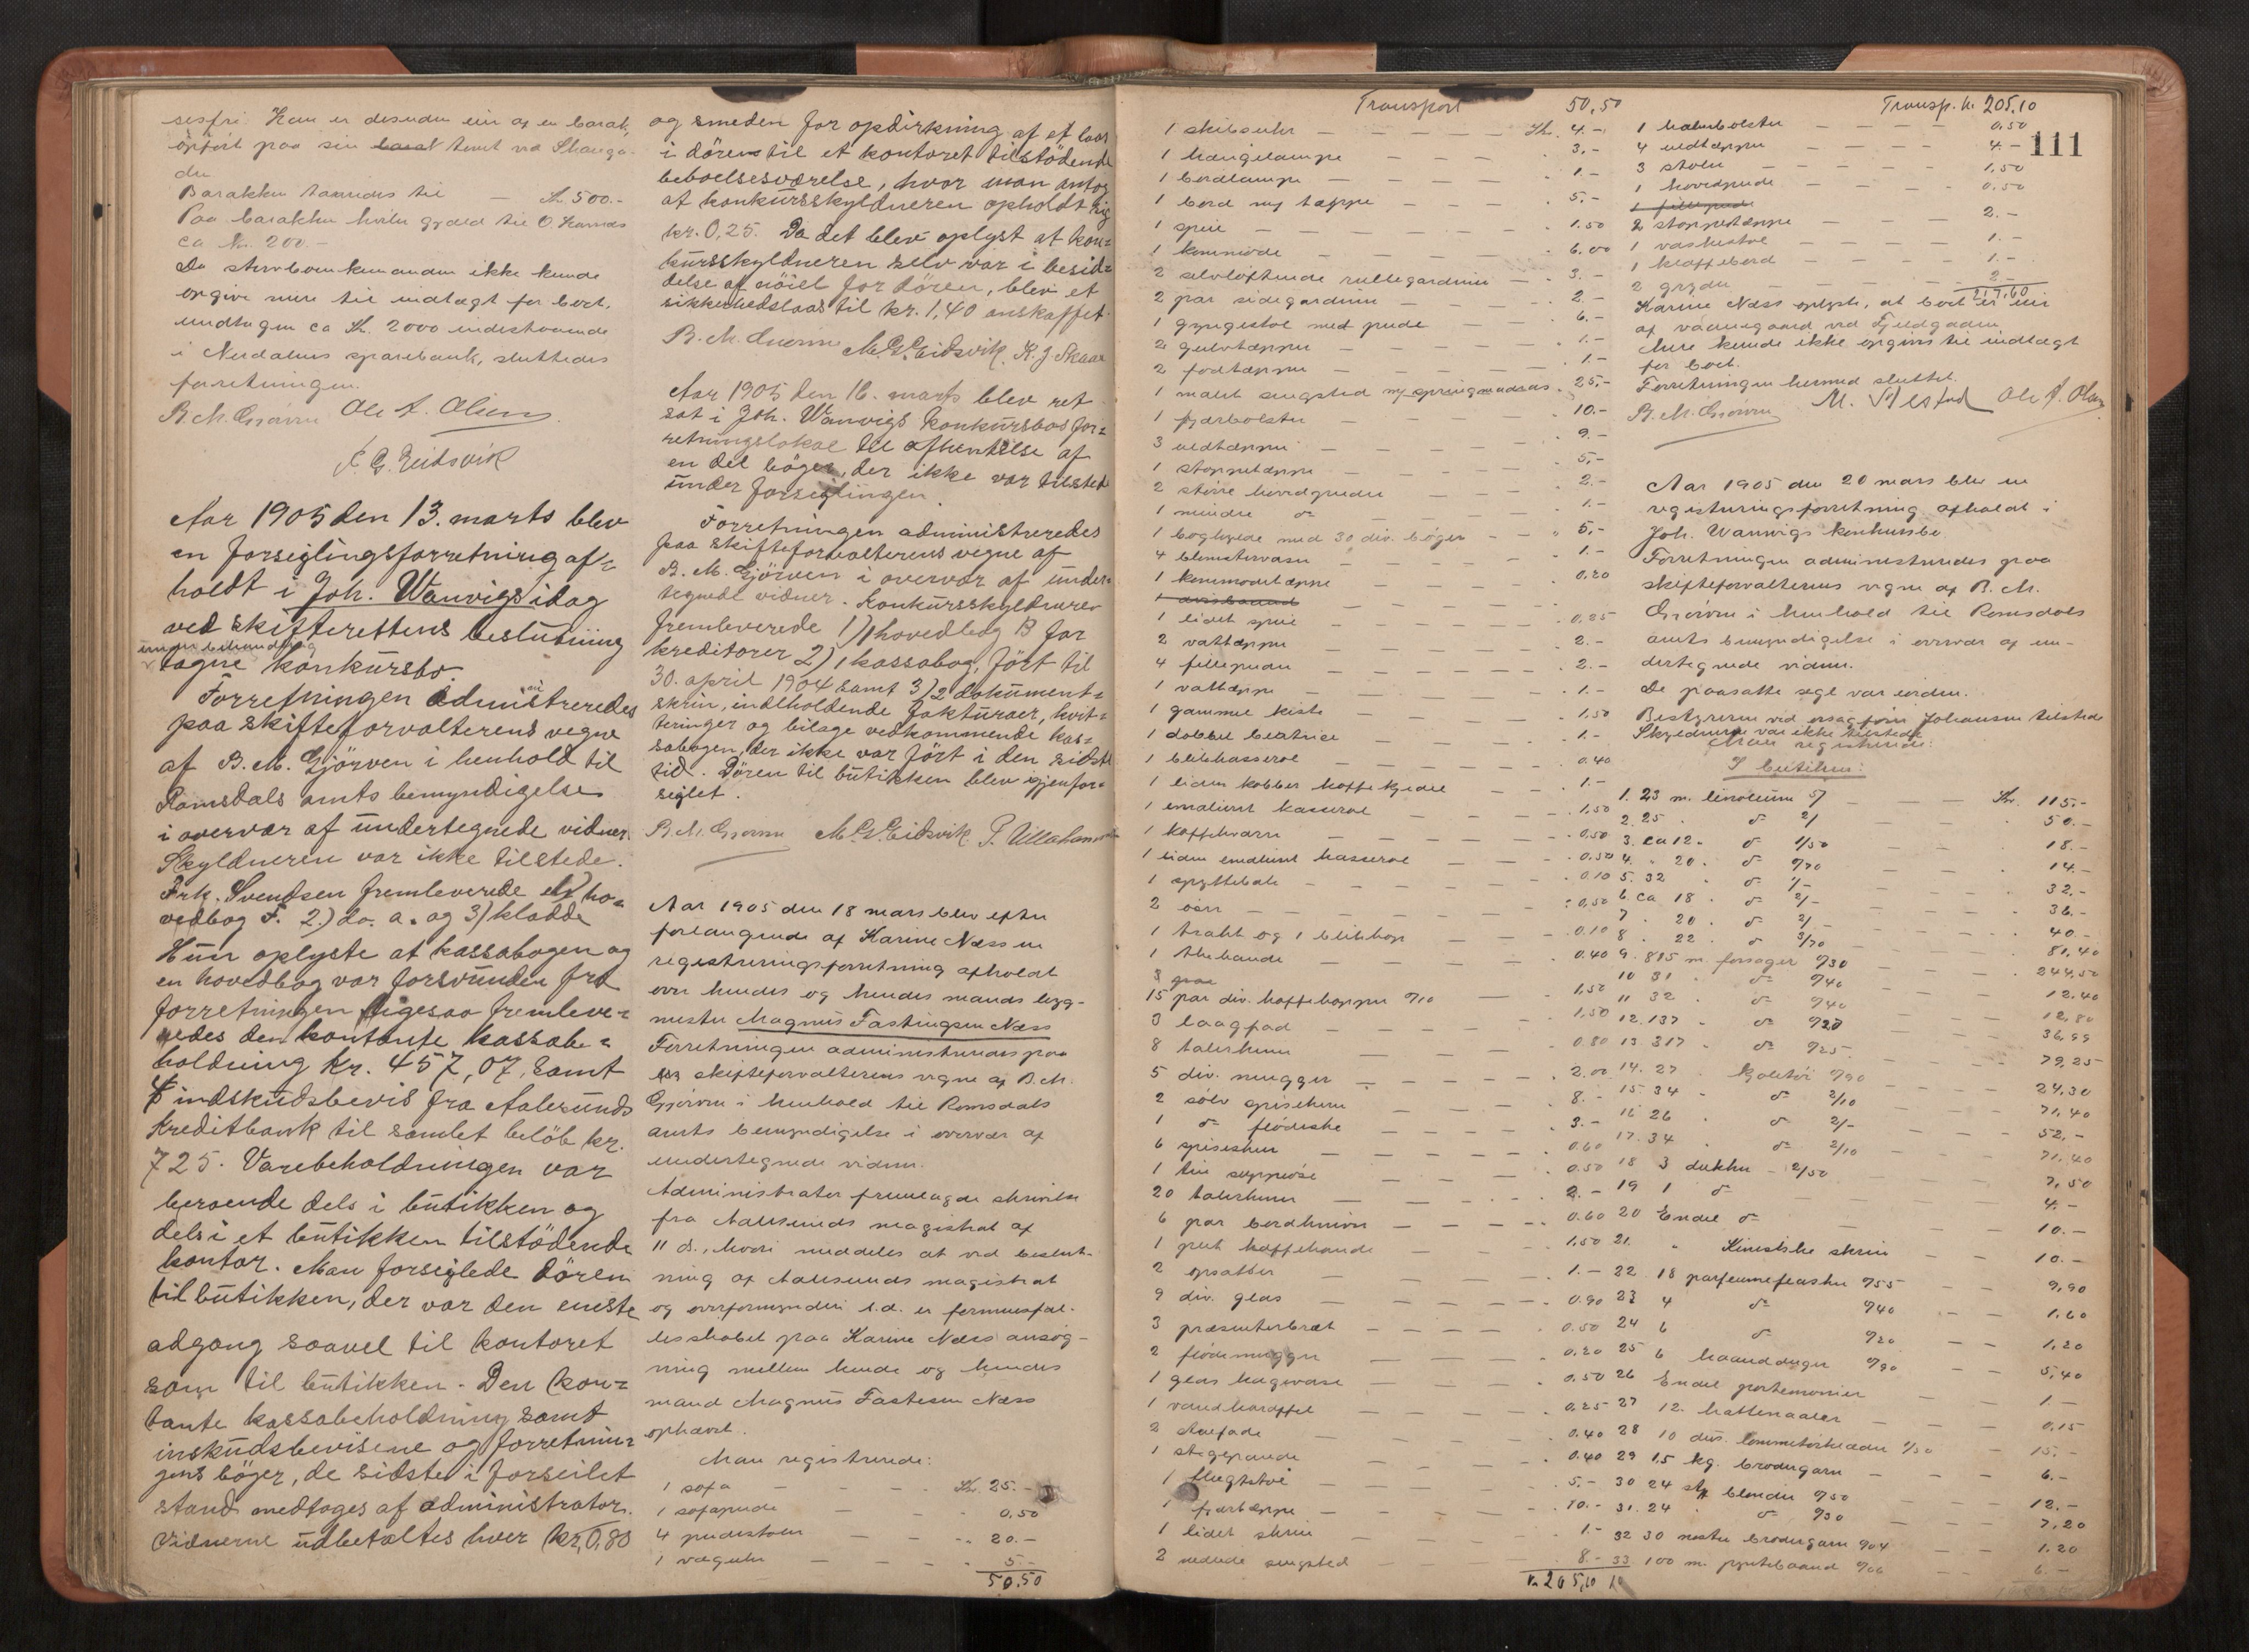 sesfri. Han er desuden eier af en barak,
opført paa sin tomt ved Skanga-
den.
Barakken taxeredes til — Kr. 500.-
Paa barakken hviler gjæld til O.
ca kr. 200.-
Da sterboenkemanden ikke kunde
opgive mere til indtægt for boet,
undtagen ca Kr. 2000 indestaaende
i Nerdalens sparebank, sluttedes
forretningen.
B. M. Gjørven Ole A. Olsen
Eidsvik
Aar 1905 den 13. marts blev
en forseglingsforretning af=
holdt i Joh. Wanvigs idag
ved skifterettens beslutning
under behandling
tagne konkursbo.
Forretningen administreredes
paa skifteforvalterens vegne
af B. M. Gjörven i henhold til
Romsdals amts bemyndigelse
i overvær af undertegnede vidner.
Skyldneren var ikke tilstede.
Frk. Svendsen fremleverede 1) ho=
vedbog F. 2.) do. a. og 3) kladde
Hun oplyste at kassabogen og
en hovedbog var forsvunden fra
forretningen ligesaa fremleve=
redes den kontante kassabe=
holdning kr. 457,07, samt
indskudsbevis fra Aalesunds
Kreditbank til samlet belöb kr.
725. Varebeholdningen var
beroende dels i butikken og
dels i et butikken tilstödende
kontor. Man forseglede dören
til butikken, der var den eneste
adgang saavel til kontoret
som til butikken. Den kon=
tante kassabeholdning samt
inskudsbevisene og forretnin=
gens böger, de sidste i forseilet
stand medtoges af administrator.
Vidnerne udbetaltes hver kr. 0,80
og smeden for opdirkning af et laas
i dören til et kontoret tilstödende
beboelsesværelse, hvor man antog
at konkursskyldneren opholdt sig
kr. 0,25. Da det blev oplyst at kon=
kursskyldneren selv var i besid=
delse af nöiel for dören, blev et
sikkerhedslaas til kr. 1,40 anskaffet.
B. M. Gjørven M. G. Eidsvik. K. J. Skaar
Aar 1905 den 16. marts blev ret
sat i Joh. Wanvigs konkursbos for=
retningslokal til afhentelse af
en del böger, der ikke var tilstede
under forseglingen.
Forretningen administreredes
paa skifteforvalterens vegne af
B. M. Gjörven i overvær af under=
tegnede vidner. Konkursskyldneren
fremleverede 1) 1 hovedbog B for
kreditorer 2) 1 kassabog, fört til
30. april 1904 samt 3) 2 dokument=
skrin, indeholdende fakturaer, kvit=
teringer og bilage vedkommende kas=
sabogen, der ikke var fört i den sidste
tid. Dören til butikken blev igjenfor=
seglet.
B. M. Gjørven M. G. Eidsvik P.
Aar 1905 den 18 mars blev efter
forlangende af Karine Næss en
registreringsforretning afholdt
over hendes og hendes mands bygg-
mester Magnus Fastingsen Næss
Forretningen administreredes paa
skifteforvalterens vegne af B. M.
Gjørven i henhold til Romsdals
amts bemyndigelse i overvær af
undertegnede vidner.
Administrator fremlagde skrivelse
fra Aalesunds magistrat af
11 ds., hvori meddeles at ved beslut-
ning af Aalesunds magistrat
og overformynderi s.d. er formuesfæl-
lesskabet paa Karine Næss ansøg-
ning mellem hende og hendes
mand Magnus Fastesen Næss
ophævet.
Man registrerede:
1 sofa — Kr. 25.-
1 sofapude — 0,50
4 pudestoler — 20.-
1 væguhr — 5.-
50,50
Transport 50,50
1 skibsuhr — Kr. 4.-
1 hængelampe — 3.-
1 bordlampe — 1.-
1 bord m/ tæppe — 5.-
1 speil — 1.50
1 kommode — 6.00
2 selvløftende rullegardiner — 3.-
2 par sidegardiner — 2.-
1 gyngestol med pude — 6.-
2 gulvtæpper — 1.-
2 fodtæpper — 1.-
1 malet sengsted m/ springmadras 25,-
1 fjærbolster — 10.-
3 uldtæpper — 9.-
1 stoppetæppe — 5.-
2 større hovedpuder — 2.-
1 mindre do — 1.-
1 boghylde med 30 div. bøger — 5,-
4 blomstervaser — 1.-
1 kommodetæppe — 0,20
1 lidet speil — 0,25
2 vattæpper — 2.-
4 fillepuder — 2.-
1 vattæppe — 1.-
1 gammel kiste — 1,50
1 dobbel beatrice — 1.-
1 blikkasserol — 0.40
1 liden kobber kaffekjedel — 1.-
1 emaljeret kasserol — 1,50
1 kaffekværn — 0,50
1 liden emaljeret kasserol — 0,50
1 spyttebak — 0.10
2 øser — 0,50
1 trakt og 1 blikkop — 0.10
1 thekande — 0.40
3 grae
15 par div. kaffekopper 0/10 — 1,50
3 laagfad — 1,50
8 talerkener — 0.80
5 div. mugger — 2.00
2 sølv spiseskeer — 8.-
1 do flødeske — 3.-
6 spiseskeer — 0.60
1 tin suppeøse — 0.50
20 talerkener — 2.-
6 par bordkniver — 0.60
1 plet kaffekande — 1,50
2 opsatser — 1.-
9 div. glas — 0.90
3 præsenterbræt — 0.50
2 flødemugger — 0,20
1 glas kagevase — 0.50
1 vandkaraffel — 0,25
2 stenfade — 0.40
1 stegepande — 0.40
1 flugtstol — 5.-
1 fjærtæppe — 10.-
1 lidet skrin — 1.-
2 nedlade sengsted — 8.-
kr. 205,10
Transp. kr. 205.10
111
1 halmbolster — 0.50
4 uldtæpper — 4.-
3 stoler — 1,50
1 hovedpude — 0.50
1 fillepude
2 stoppetæppe — 2.-
1 vaskestol — 1.-
1 klaffebord — 1.-
2 gryder — 2.-
217,60
Karine Næss oplyste, at boet er eier
af vaaningsgaard ved Fjeldgaden
Mere kunde ikke opgives til indtægt
for boet.
Forretningen hermed sluttet.
B. M. Gjørven Ole A. Olsen
Aar 1905 den 20 mars blev en
registreringsforretning afholdt i
Joh. Wanvigs konkursbo.
Forretningen administreredes paa
skifteforvalterens vegne af B. M.
Gjørven i henhold til Romsdals
amts bemyndigelse i overvær af un-
dertegnede vidner.
De paasatte segl var iorden.
Bestyreren ved overretssagfører Johansen tilstede
Skyldneren var ikke tilstede
Man registrerede:
I butiken:
1. 23 m. linoleum 5/ — Kr. 115.-
2. 25 " do 2/ — 50.-
3. ca 12 " do 1/50 — 18.-
4. " 20 " do 0/70 — 14.-
5. 32 " do 1/- — 32.-
6. ca 18 " do 2/- — 36.-
7 " 20 " do 2/- — 40.-
8 " 22 " do 3/70 — 81,40
9. 815 m. forsager 0/30 — 244,50
10 31 " do 0/40 — 12.40
11 32 " do 0/40 — 12,80
12. 137 " do 0/27 — 36,99
13. 317 " do 0/25 — 79,25
14. 27 " Goletöi 0/90 — 24,30
15. 34 " do 2/10 — 71,40
16 26 " do 2/- — 52,-
17. 34 " do 2/10 — 71,40
18 3 dukker — 2/50 — 7,50
19 1 do — 4.-
20 Endel do — 10.-
21. " Kinesiske skrin — 10.-
22 18 parfumeflasker 0/55 — 9,90
23 4 do 0/40 — 1,60
24 6 do 0/20 — 1,20
25 6 haandduger 0/90 — 5,40
26 Endel portemonier — 1.-
27 12. hattenaaler — 0,15
28 10 dus. lommetørklæder 1/50 — 15.-
29 1,5 kg. brodergarn — 6.-
30 24 stk blonder 0/50 — 12.-
31. 24 " do 0/30 — 7,20
32 30 nøster brodergarn 0/04 — 1.20
33 100 m. pyntebaand 0/06 — 6.-